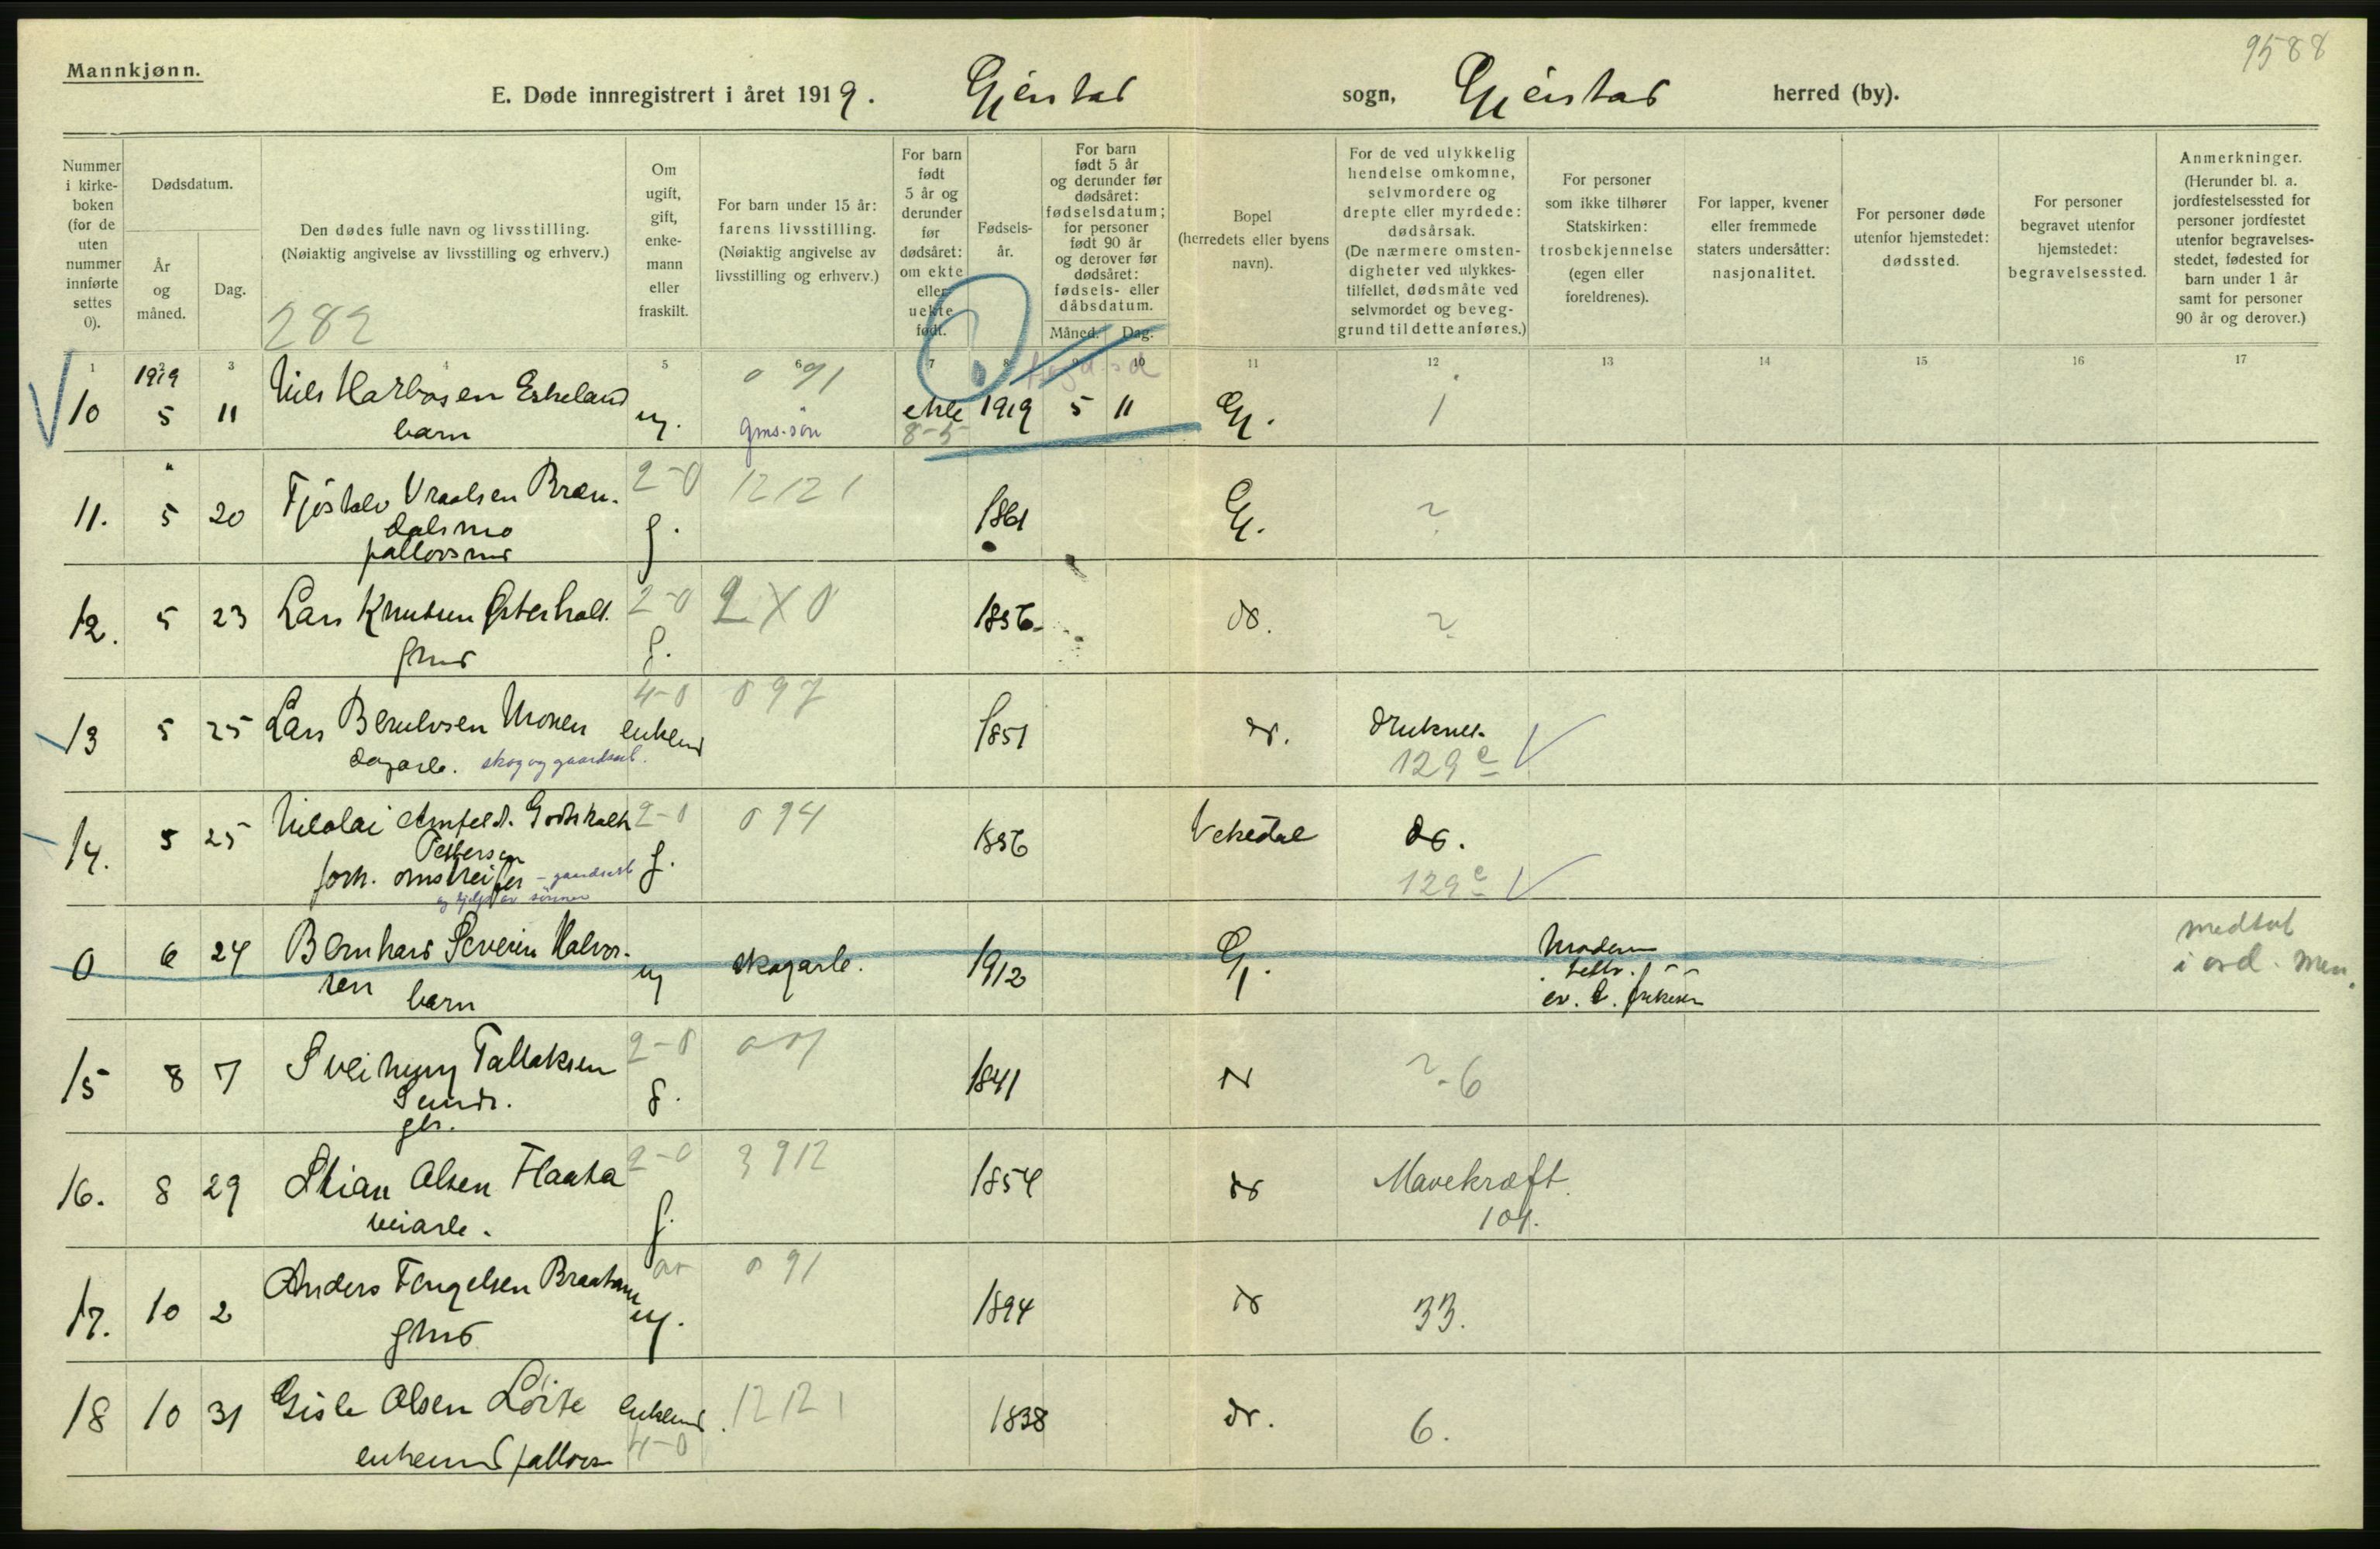 9588
Mannkjønn.
E. Døde innregistrert i året 1919. Gjerstad sogn, Gjerstad herred (by).
Nummer i kirke-boken (for de uten nummer innførte settes 0).
Dødsdatum.
År og måned.
Dag.
Den dødes fulle navn og livsstilling.
(Nøiaktig angivelse av livsstilling og erhverv.)
282
Om ugift, gift, enke-mann eller fraskilt.
For barn under 15 år: farens livsstilling.
(Nøiaktig angivelse av livsstilling og erhverv.)
For barn født 5 år og derunder før dødsåret: om ekte eller uekte født.
Fødsels-år.
For barn født 5 år og derunder før dødsåret: fødselsdatum; for personer født 90 år og derover før dødsåret: fødsels- eller dåbsdatum.
Måned. Dag.
Bopel (herredets eller byens navn).
For de ved ulykkelig hendelse omkomne, selvmordere og drepte eller myrdede: dødsårsak.
(De nærmere omsten-digheter ved ulykkes-tilfellet, dødsmåte ved selvmordet og beveg-grund til dette anføres.)
For personer som ikke tilhører Statskirken: trosbekjennelse (egen eller foreldrenes).
For lapper, kvener eller fremmede staters undersåtter: nasjonalitet.
For personer døde utenfor hjemstedet: dødssted.
For personer begravet utenfor hjemstedet: begravelsessted.
Anmerkninger.
(Herunder bl. a. jordfestelsessted for personer jordfestet utenfor begravelses-stedet, fødested for barn under 1 år samt for personer 90 år og derover.)
1 2 3 4 5 6 7 8 9 10 11 12 13 14 15 16 17
1919
10 5 11 Nils Harbosen Eskeland ug. 091 ekte 1919 5 11 Gj. 1
barn gms. søn 8-5
11. " 5 20 Fjøstolv Vraalsen Bræn- 2-0 12121 1861 Gj. ?
dalsmo g.
12. 5 23 Lars Knutsen Østerholt 2-0 2X0 1856 do. ?
gmd g.
13 5 25 Lars Berulvsen Monen enkemd 4-0 097 1851 do. druknet
dagarb. skog og gaardsarb. 129 c
14. 5 25 Nikolai Amfeldt Godtskalk 2-0 094 1856 Vekedal do.
Pettersen g.
forh. omstreifer - gaardsarb 129 c
og hjelp av sønner
0 6 24 Bernhard Severin Halvor- ug skogarb. 1912 Gj. Moderen medtat
sen barn ev. l. frikirken i ord. men.
15 8 7 Sveinung Tallaksen 2-0 1841 do ?-6
Sunde. g.
gbr.
16. 8 29 Stian Olsen Flaata 2-0 3912 1854 do Mavekræft.
veiarb. g. 104.
17. 10 2 Anders Tengelsen Braaten ug. 091 1894 do 33.
gmd
18 10 31 Gisle Olsen Løite enkemd. 12121 1838 do. 6.
enkemd 4-0